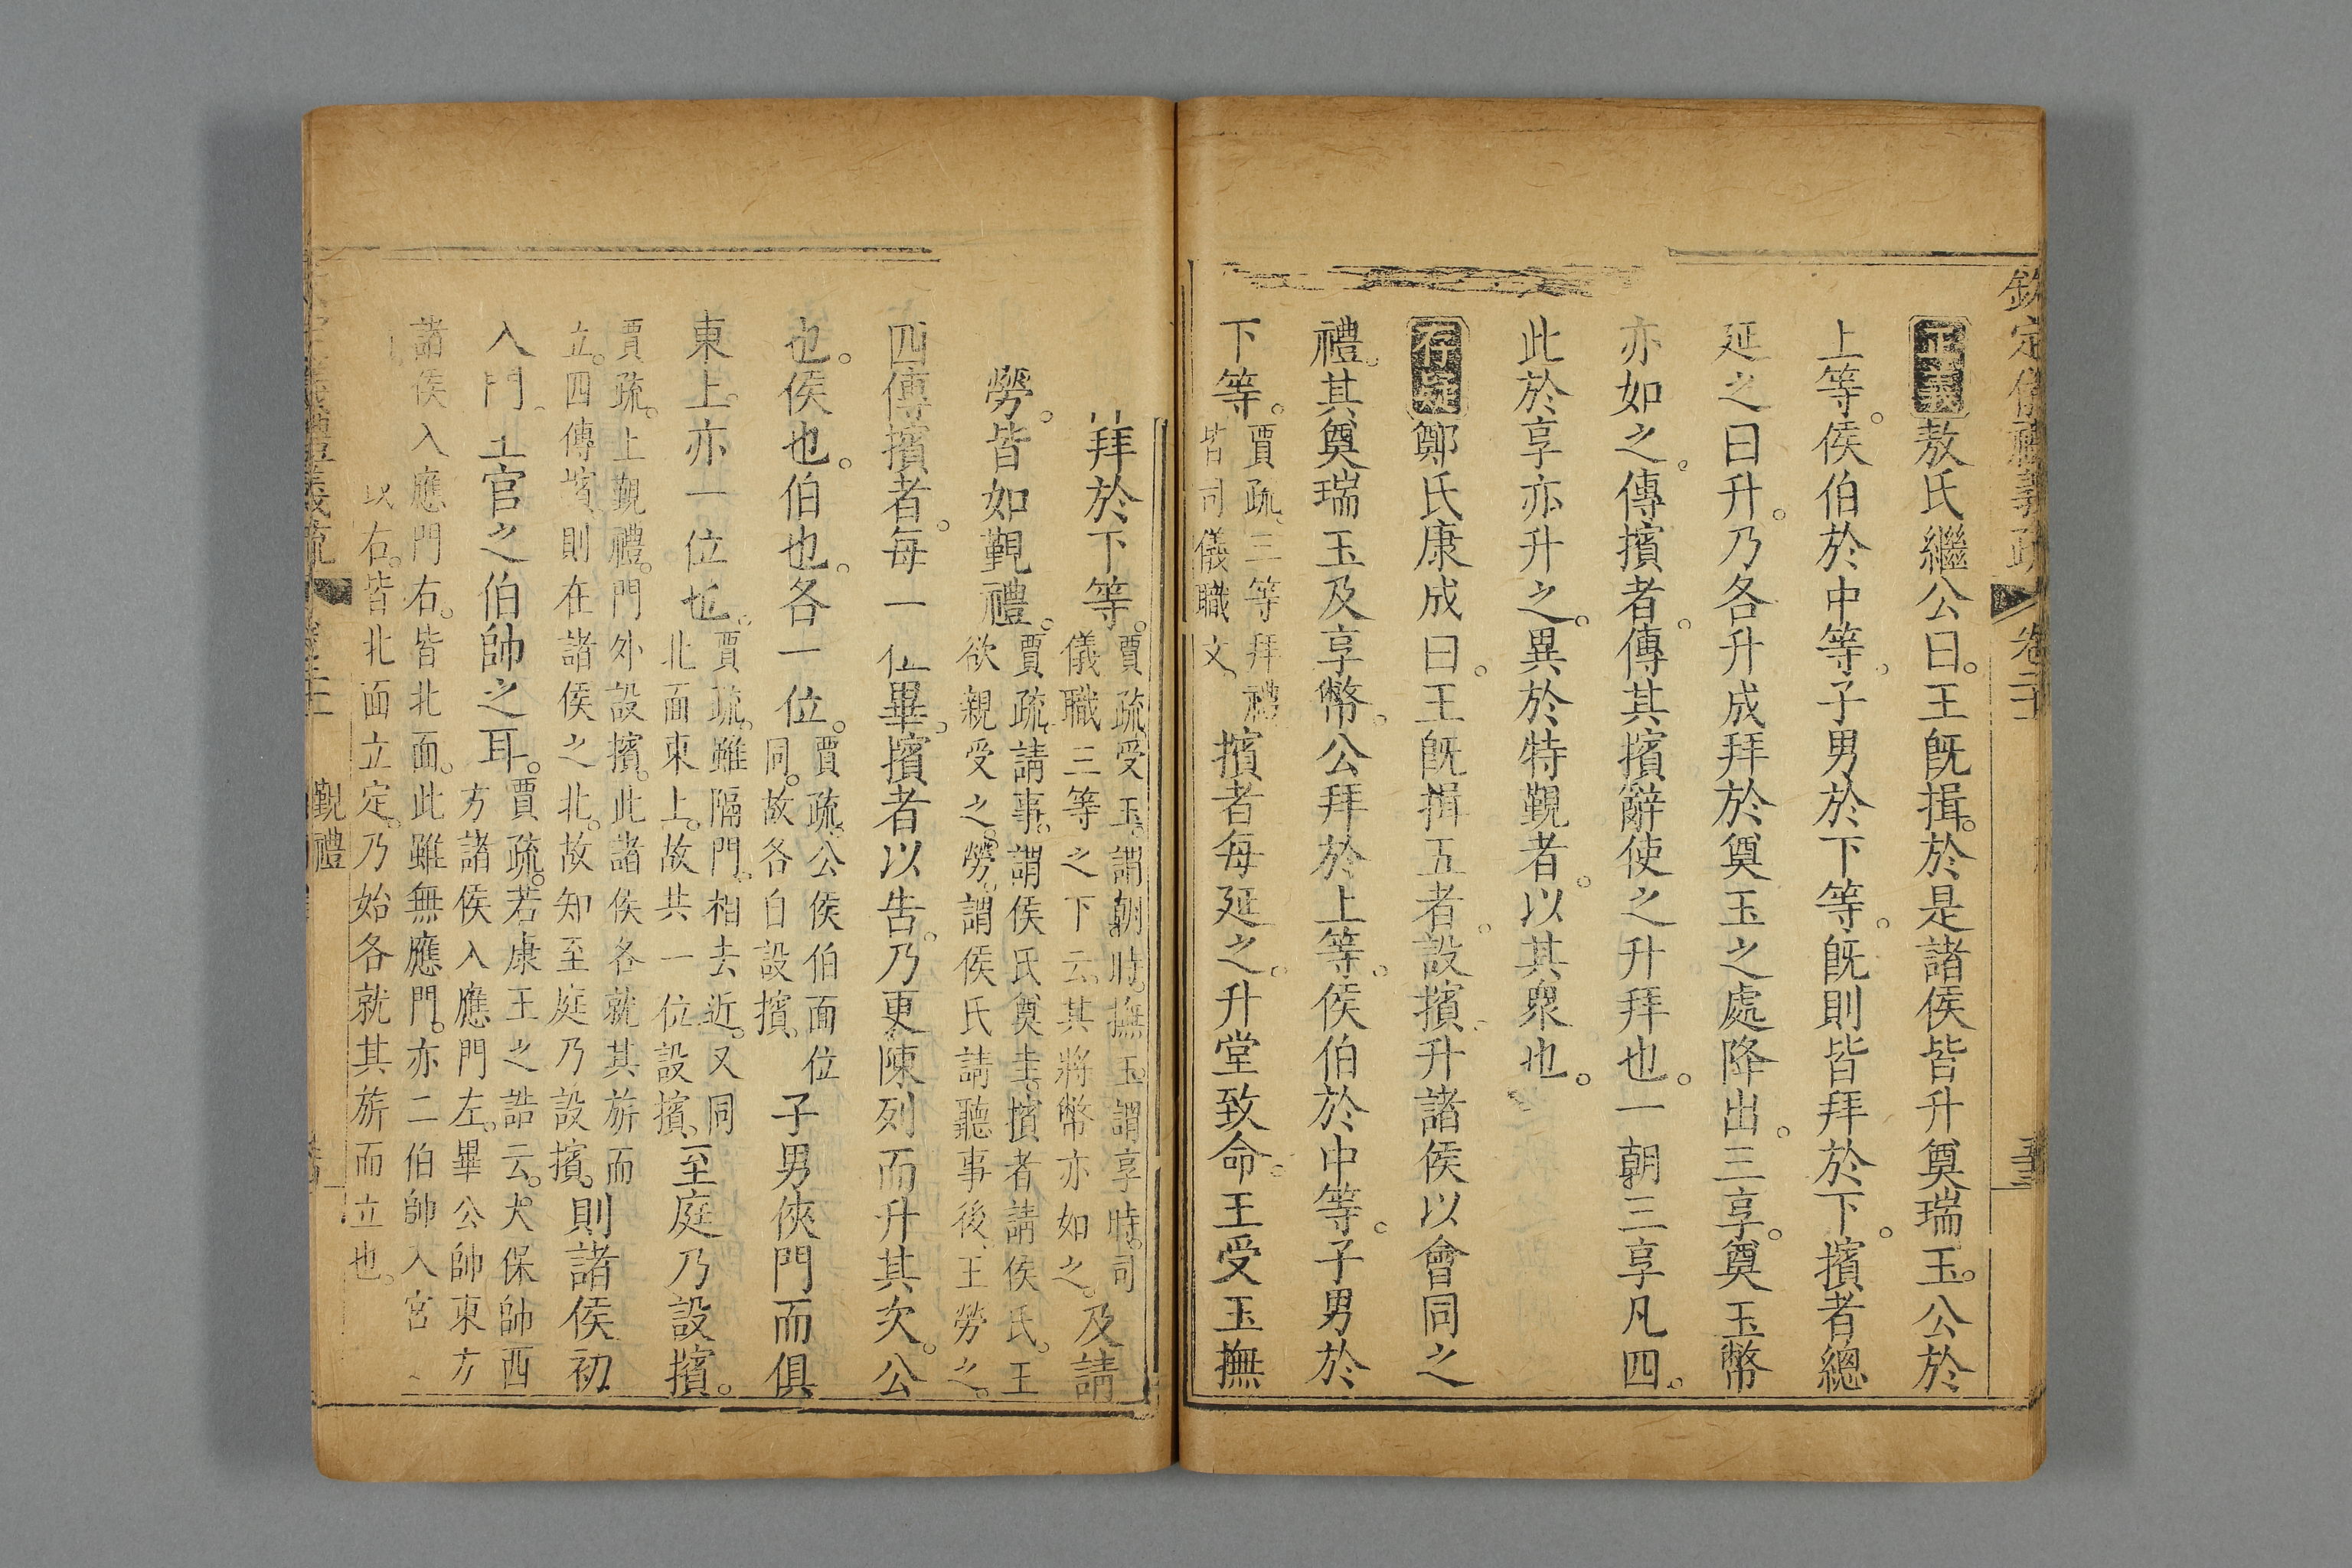 欽定儀禮義疏 卷二十
正義敖氏繼公曰。王旣揖。於是諸侯皆升奠瑞玉。公於
上等。侯伯於中等。子男於下等。旣則皆拜於下。擯者總
延之曰升。乃各升成拜於奠玉之處降出。三享。奠玉幣
亦如之。傳擯者。傳其擯辭使之升拜也。一朝三享凡四。
此於享亦升之。異於特覲者。以其衆也。
存疑鄭氏康成曰。王旣揖五者。設擯。升諸侯以會同之
禮。其奠瑞玉及享幣。公拜於上等。侯伯於中等。子男於
下等。賈疏。三等拜禮
皆司儀職文。擯者每延之。升堂致命。王受玉撫
拜於下等。賈疏。受玉。謂朝時。撫玉。謂享時。司
儀職三等之下云。其將幣亦如之。及請
勞。皆如覲禮。賈疏。請事。謂侯氏奠圭。擯者請侯氏。王
欲親受之。勞。謂侯氏請聽事後。王勞之。
四傳擯者。每一位畢。擯者以告。乃更陳列而升其次。公
也。侯也。伯也。各一位。賈疏。公侯伯面位
同。故各自設擯。子男俠門而俱
東上。亦一位也。賈疏。雖隔門。相去近。又同
北面東上。故共一位設擯。至庭乃設擯。
賈疏。上覲禮。門外設擯。此諸侯各就其旂而
立。四傳擯則在諸侯之北。故知至庭乃設擯。則諸侯初
入門。王官之伯帥之耳。賈疏。若康王之誥云。太保帥西
方諸侯入應門左。畢公帥東方
諸侯入應門右。皆北面。此雖無應門。亦二伯帥入宮
以右。皆北面立定。乃始各就其旂而立也。
覲禮